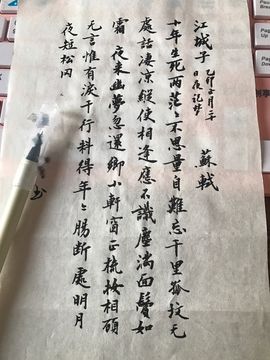 江城子 乙卯正月二十日夜記夢 蘇軾
十年生死兩茫々不思量自難忘千里孤墳无
處話凄涼縱使相逢應不識塵滿面鬢如
霜 夜來幽夢忽還鄉小軒窗正梳妝相顧
无言惟有淚千行料得年々腸斷處明月
夜短松冈
书